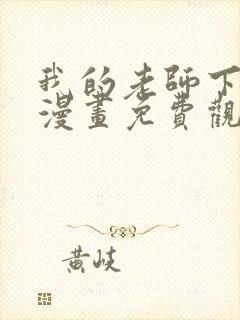 我的老師下
漫畫免費觀
黄岐